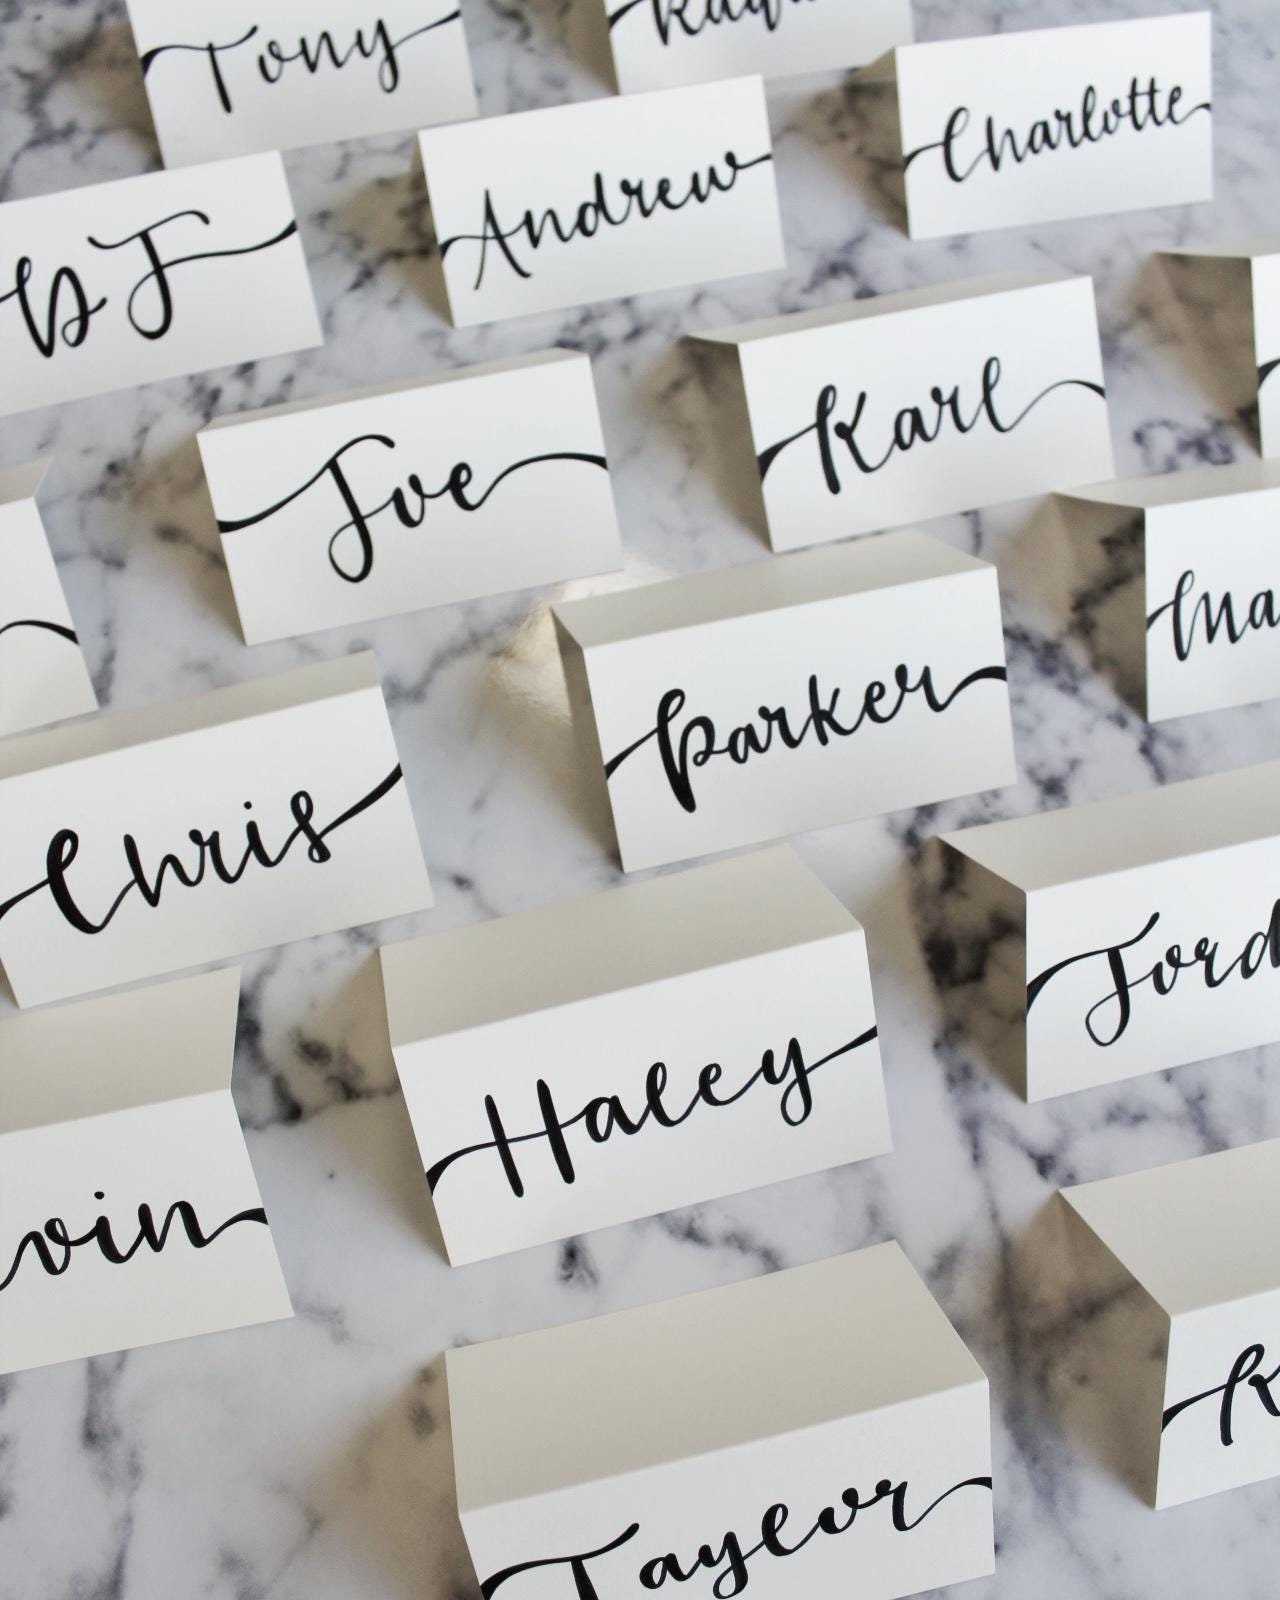 Tony
Charlotte
Andrew
DJ
Karl
Joe
Parker
Chris
Haley
Taylor